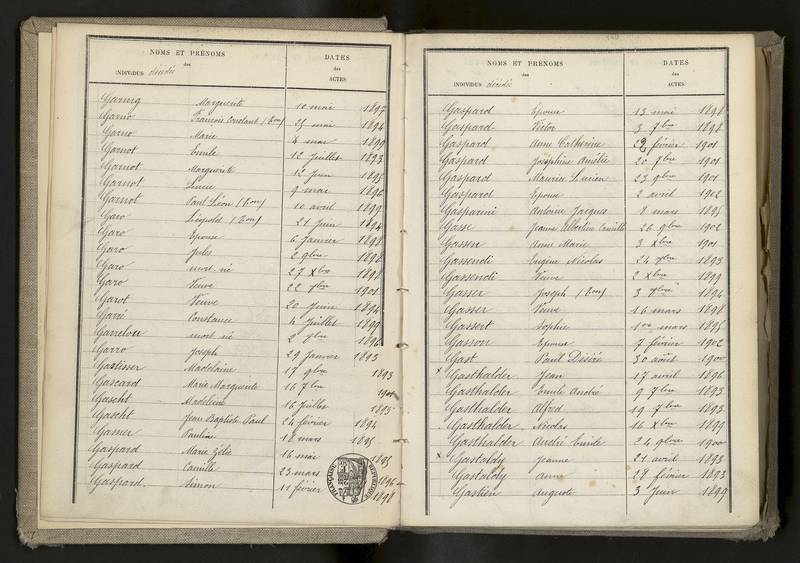 NOMS ET PRÉNOMS DATES
des des
INDIVIDUS décédés ACTES
Garnig Marguerite 10 mai 1897
Garno François Constant (Son) 25 mai 1894
Garno Marie 4 mai 1899
Garnot Emile 12 Juillet 1893
Garnot Marguerite 12 Juin 1895
Garnot Lucie 9 mai 1896
Garnot Paul Léon 10 avril 1899
Garo Léopold 21 Juin 1894
Garo Epouse 6 Janvier 1898
Garo Jules 2 9bre 1898
Garo mort né 27 Xbre 1898
Garo Veuve 22 1901
Garot Veuve 20 Juin 1894
Garré Constance 4 Juillet 1899
mort né 2 1896
Garro Joseph 29 Janvier 1893
Gastisser Madelaine 17 9bre 1893
Gascard Marie Marguerite 16 7bre 1901
Gascht Madeleine 16 Juillet 1895
Gascht Jean Baptiste Paul 24 février 1894
Gasner Pauline 18 mars 1895
Gaspard Marie Zélie 16 mai 1895
Gaspard Camille 23 mars 1896
Gaspard Simon 11 février 1898
NOMS ET PRÉNOMS DATES
des des
INDIVIDUS décédés ACTES
Gaspard Epouse 13 mai 1898
Gaspard Victor 3 7bre 1898
Gaspard Anne Catherine 23 février 1901
Gaspard Joséphine Amélie 20 7bre 1901
Gaspard Maurice Lucien 23 9bre 1901
Gaspard Epouse 2 avril 1902
Gasparini Antoine Jacques 8 mars 1895
Gasse Jeanne Albertine Camille 26 9bre 1902
Gassen Anne Marie 3 Xbre 1901
Gassendi Eugène Nicolas 24 9bre 1893
Gassendi Veuve 2 Xbre 1899
Gasser Joseph 3 9bre 1894
Gasser Veuve 16 mars 1898
Gassert Sophie 1er mars 1895
Gasson Epouse 7 février 1902
Gast Paul Désiré 30 août 1900
x Gasthalder Jean 17 avril 1896
Gasthalder Emile André 9 7bre 1893
Gasthalder Alfred 19 7bre 1893
Gasthalder Nicolas 14 Xbre 1899
Gasthalder André Emile 24 9bre 1900
x Gastaldy Jeanne 21 avril 1893
Gastaldy Anne 28 février 1893
Gastien Auguste 3 Juin 1899